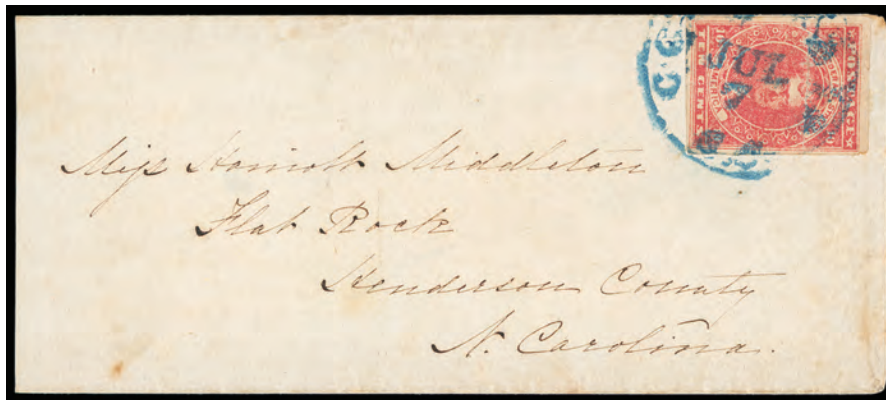 JUL
7
TEN CENTS
Miss Harriott Middleton
Flat Rock
Henderson County
N. Carolina.